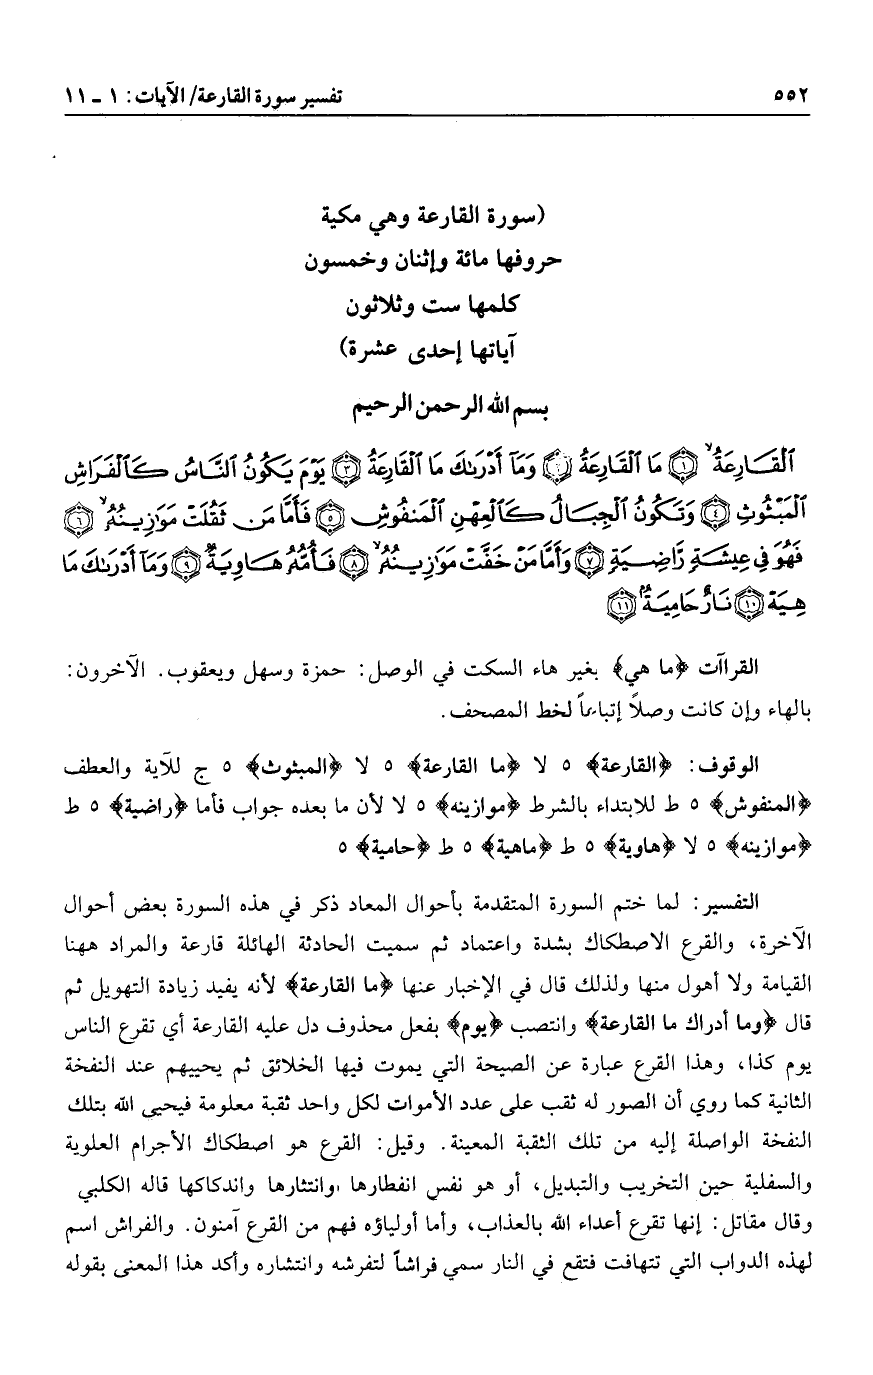 ٥٥٢ تفسير سورة القارعة/ الآيات: ١ - ١١
(سورة القارعة وهي مكية
حروفها مائة وإثنان وخمسون
كلمها ست وثلاثون
آياتها إحدى عشرة)
بسم الله الرحمن الرحيم
ٱلْقَارِعَةُ ۙ ﴿١﴾ مَا ٱلْقَارِعَةُ ﴿٢﴾ وَمَآ أَدْرَىٰكَ مَا ٱلْقَارِعَةُ ﴿٣﴾ يَوْمَ يَكُونُ ٱلنَّاسُ كَٱلْفَرَاشِ
ٱلْمَبْثُوثِ ﴿٤﴾ وَتَكُونُ ٱلْجِبَالُ كَٱلْعِهْنِ ٱلْمَنفُوشِ ﴿٥﴾ فَأَمَّا مَن ثَقُلَتْ مَوَٰزِينُهُۥ ۙ ﴿٦﴾
فَهُوَ فِى عِيشَةٍ رَّاضِيَةٍ ﴿٧﴾ وَأَمَّا مَنْ خَفَّتْ مَوَٰزِينُهُۥ ۙ ﴿٨﴾ فَأُمُّهُۥ هَاوِيَةٌ ﴿٩﴾ وَمَآ أَدْرَىٰكَ مَا
هِيَهْ ﴿١٠﴾ نَارٌ حَامِيَةٌ ﴿١١﴾
القراآت ﴿ما هي﴾ بغير هاء السكت في الوصل: حمزة وسهل ويعقوب. الآخرون:
بالهاء وإن كانت وصلاً إتباعاً لخط المصحف.
الوقوف: ﴿القارعة﴾ ٥ لا ﴿ما القارعة﴾ ٥ لا ﴿المبثوث﴾ ٥ ج للآية والعطف
﴿المنفوش﴾ ٥ ط للابتداء بالشرط ﴿موازينه﴾ ٥ لا لأن ما بعده جواب فأما ﴿راضية﴾ ٥ ط
﴿موازينه﴾ ٥ لا ﴿هاوية﴾ ٥ ط ﴿ماهية﴾ ٥ ط ﴿حامية﴾ ٥
التفسير: لما ختم السورة المتقدمة بأحوال المعاد ذكر في هذه السورة بعض أحوال
الآخرة، والقرع الاصطكاك بشدة واعتماد ثم سميت الحادثة الهائلة قارعة والمراد ههنا
القيامة ولا أهول منها ولذلك قال في الإخبار عنها ﴿ما القارعة﴾ لأنه يفيد زيادة التهويل ثم
قال ﴿وما أدراك ما القارعة﴾ وانتصب ﴿يوم﴾ بفعل محذوف دل عليه القارعة أي تقرع الناس
يوم كذا، وهذا القرع عبارة عن الصيحة التي يموت فيها الخلائق ثم يحييهم عند النفخة
الثانية كما روي أن الصور له ثقب على عدد الأموات لكل واحد ثقبة معلومة فيحيى الله بتلك
النفخة الواصلة إليه من تلك الثقبة المعينة. وقيل: القرع هو اصطكاك الأجرام العلوية
والسفلية حين التخريب والتبديل، أو هو نفس انفطارها وانتثارها واندكاكها قاله الكلبي
وقال مقاتل: إنها تقرع أعداء الله بالعذاب، وأما أولياؤه فهم من القرع آمنون. والفراش اسم
لهذه الدواب التي تتهافت فتقع في النار سمي فراشاً لتفرشه وانتشاره وأكد هذا المعنى بقوله